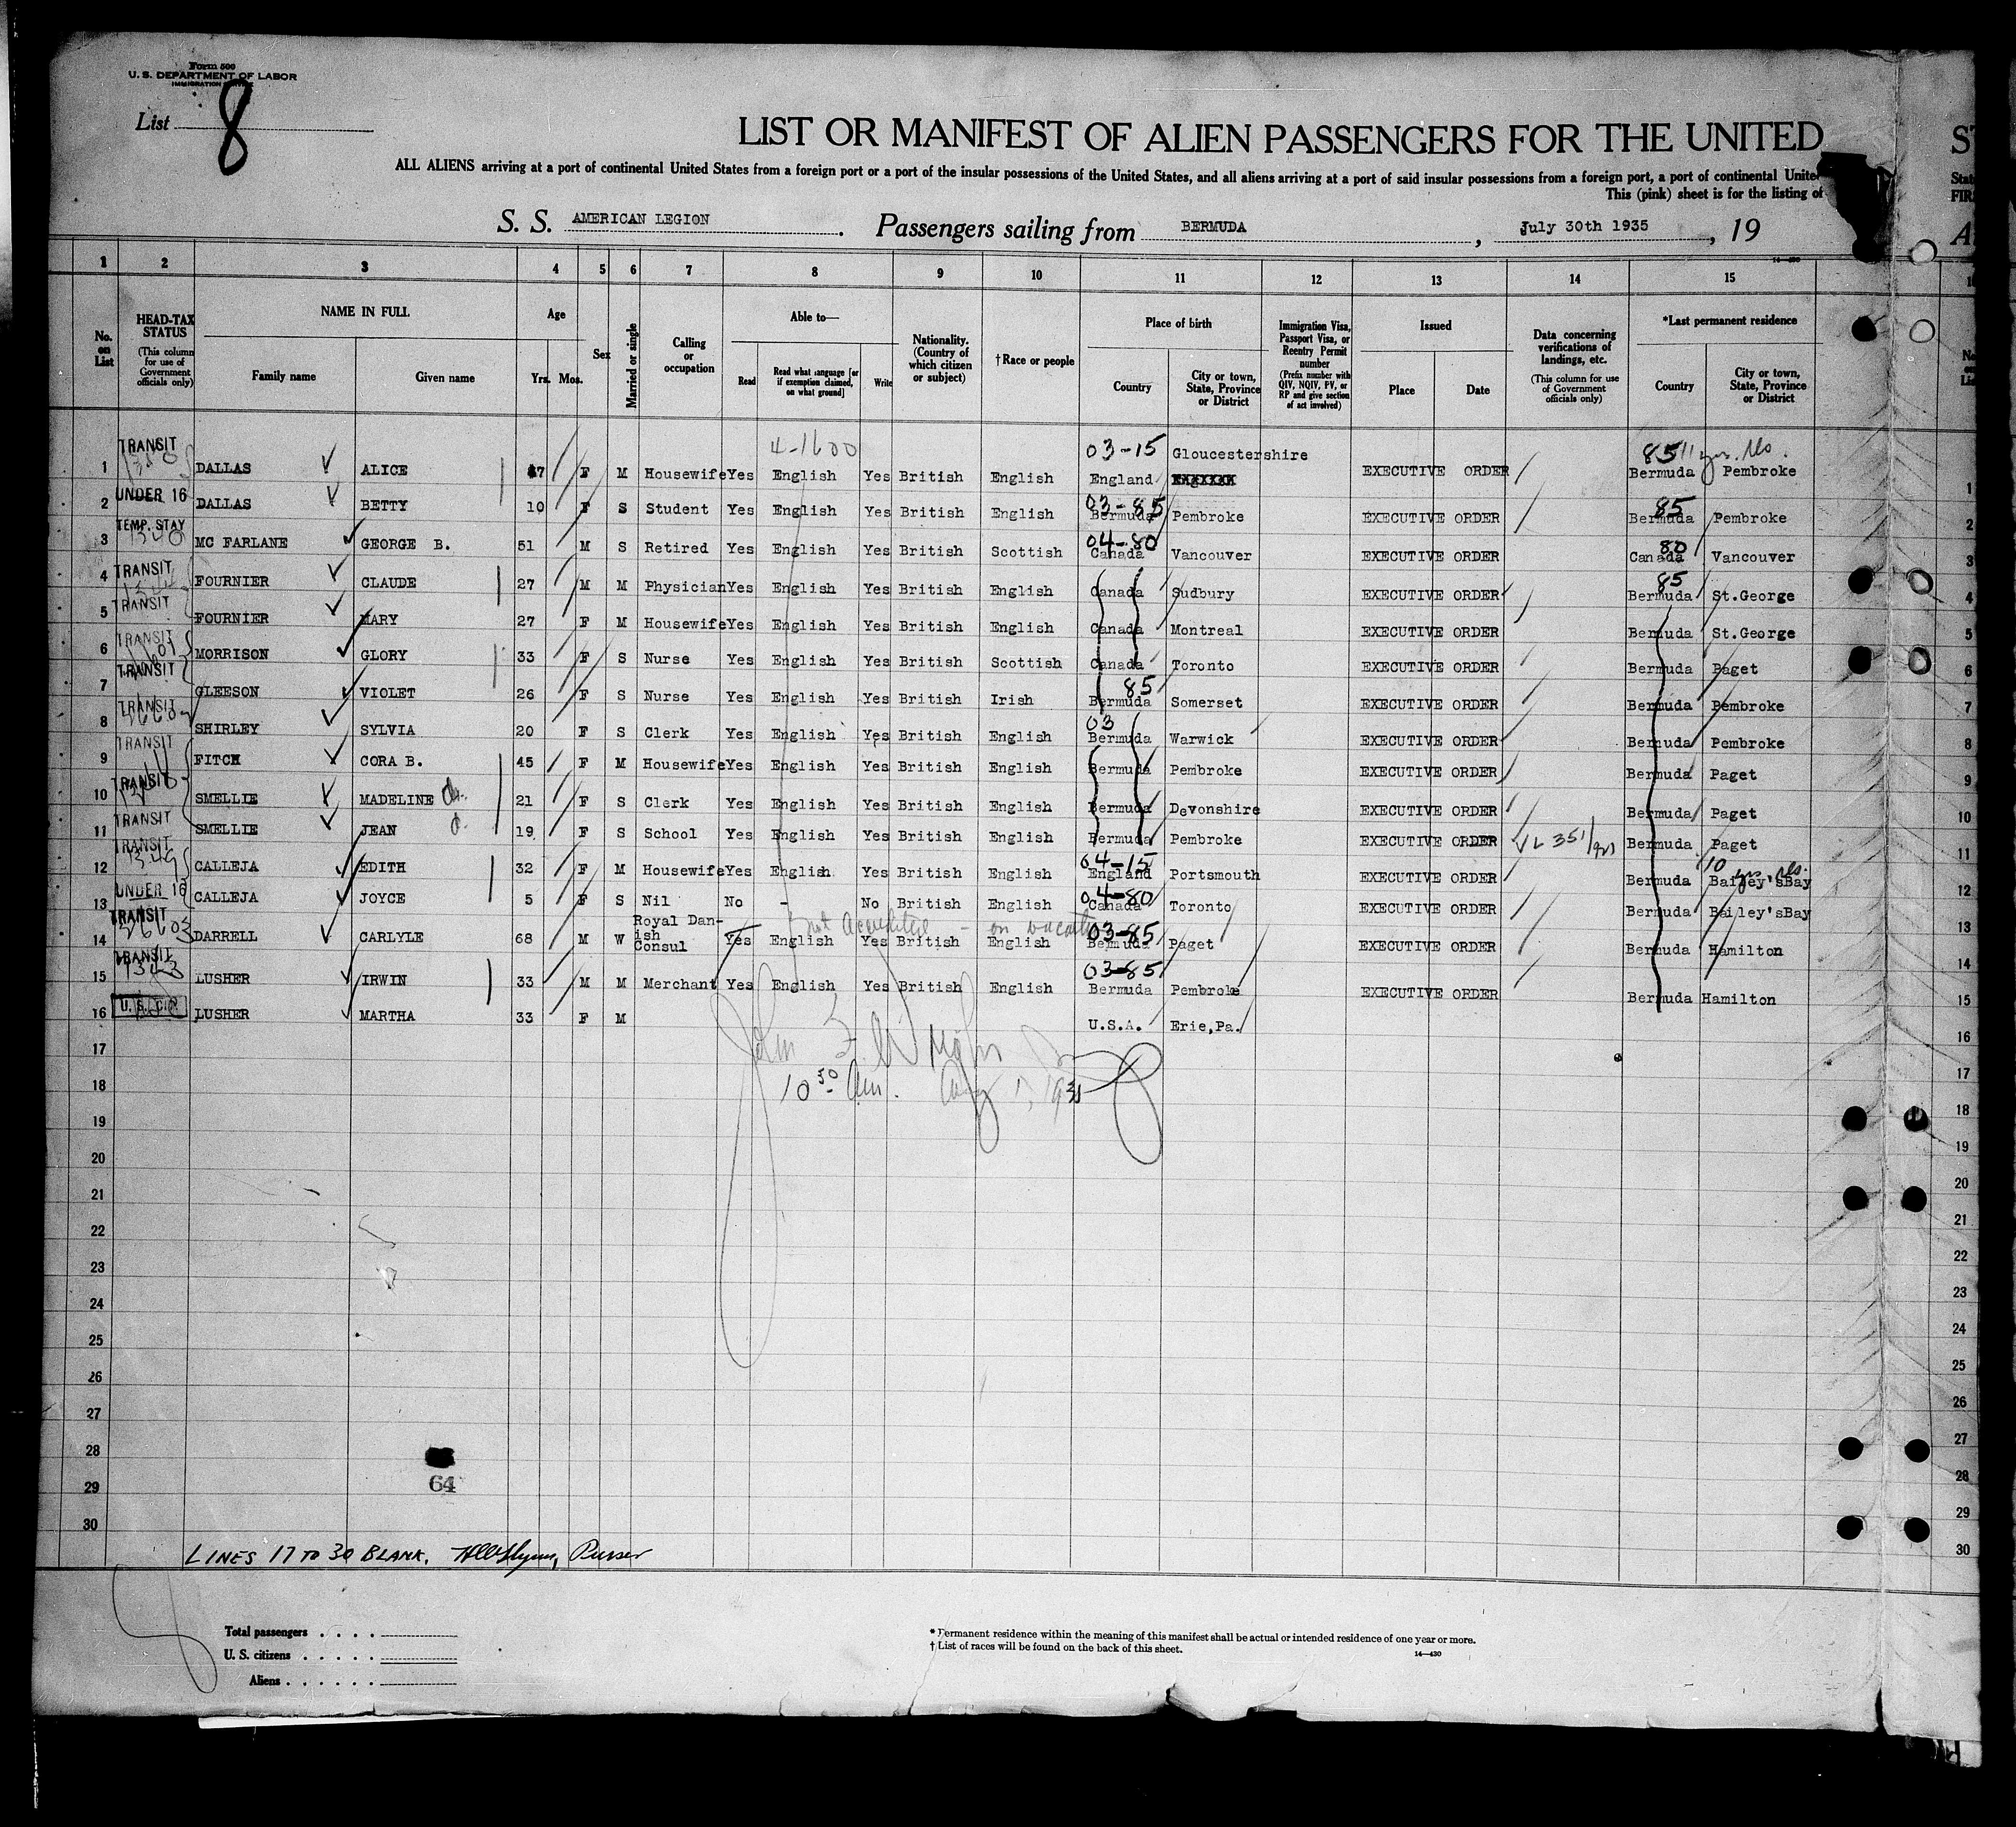 Form 500
U. S. DEPARTMENT OF LABOR
IMMIGRATION
List 8
LIST OR MANIFEST OF ALIEN PASSENGERS FOR THE UNITED ST
ALL ALIENS arriving at a port of continental United States from a foreign port or a port of the insular possessions of the United States, and all aliens arriving at a port of said insular possessions from a foreign port, a port of continental United Stat
This (pink) sheet is for the listing of FIR
S. S. AMERICAN LEGION. Passengers sailing from BERMUDA, July 30th 1935, 19
1 2 3 4 5 6 7 8 9 10 11 12 13 14 15
No. on List
HEAD-TAX STATUS (This column for use of Government officials only)
NAME IN FULL
Family name Given name
Age
Yrs. Mos.
Sex
Married or single
Calling or occupation
Able to—
Read Read what language [or if exemption claimed, on what ground] Write
Nationality. (Country of which citizen or subject)
†Race or people
Place of birth
Country City or town, State, Province or District
Immigration Visa, Passport Visa, or Reentry Permit number (Prefix number with QIV, NQIV, PV, or RP and give section of act involved)
Issued
Place Date
Data concerning verifications of landings, etc. (This column for use of Government officials only)
*Last permanent residence
Country City or town, State, Province or District
4-1600 03-15 Gloucestershire 85 11 yrs.
1 TRANSIT DALLAS ALICE 47 F M Housewife Yes English Yes British English England EXECUTIVE ORDER Bermuda Pembroke 1
2 UNDER 16 DALLAS BETTY 10 F S Student Yes English Yes British English 03-85 Bermuda Pembroke EXECUTIVE ORDER 85 Bermuda Pembroke 2
3 TEMP. STAY MC FARLANE GEORGE B. 51 M S Retired Yes English Yes British Scottish 04-80 Canada Vancouver EXECUTIVE ORDER 80 Canada Vancouver 3
4 TRANSIT FOURNIER CLAUDE 27 M M Physician Yes English Yes British English Canada Sudbury EXECUTIVE ORDER 85 Bermuda St.George 4
5 TRANSIT FOURNIER MARY 27 F M Housewife Yes English Yes British English Canada Montreal EXECUTIVE ORDER Bermuda St.George 5
6 TRANSIT MORRISON GLORY 33 F S Nurse Yes English Yes British Scottish Canada Toronto EXECUTIVE ORDER Bermuda Paget 6
7 TRANSIT GLEESON VIOLET 26 F S Nurse Yes English Yes British Irish 85 Bermuda Somerset EXECUTIVE ORDER Bermuda Pembroke 7
8 TRANSIT SHIRLEY SYLVIA 20 F S Clerk Yes English Yes British English 03 Bermuda Warwick EXECUTIVE ORDER Bermuda Pembroke 8
9 TRANSIT FITCH CORA B. 45 F M Housewife Yes English Yes British English Bermuda Pembroke EXECUTIVE ORDER Bermuda Paget 9
10 TRANSIT SMELLIE MADELINE 21 F S Clerk Yes English Yes British English Bermuda Devonshire EXECUTIVE ORDER Bermuda Paget 10
11 TRANSIT SMELLIE JEAN 19 F S School Yes English Yes British English Bermuda Pembroke EXECUTIVE ORDER Bermuda Paget 11
12 TRANSIT CALLEJA EDITH 32 F M Housewife Yes English Yes British English 04-15 England Portsmouth EXECUTIVE ORDER Bermuda 10 yrs. Bailey'sBay 12
13 UNDER 16 CALLEJA JOYCE 5 F S Nil No - No British English 04-80 Canada Toronto EXECUTIVE ORDER Bermuda Bailey'sBay 13
14 TRANSIT DARRELL CARLYLE 68 M W Royal Dan-ish Consul Yes English Yes British English 03-85 Bermuda Paget EXECUTIVE ORDER Bermuda Hamilton 14
15 TRANSIT LUSHER IRWIN 33 M M Merchant Yes English Yes British English 03-85 Bermuda Pembroke EXECUTIVE ORDER Bermuda Hamilton 15
16 U. S. CIT. LUSHER MARTHA 33 F M U.S.A. Erie,Pa. 16
17 17
10 50 Am. Aug 1, 1935
18 18
19 19
20 20
21 21
22 22
23 23
24 24
25 25
26 26
27 27
28 28
64
29 29
30 30
LINES 17 TO 30 BLANK. Purser
Total passengers
U. S. citizens
Aliens
* Permanent residence within the meaning of this manifest shall be actual or intended residence of one year or more.
† List of races will be found on the back of this sheet.
14—430